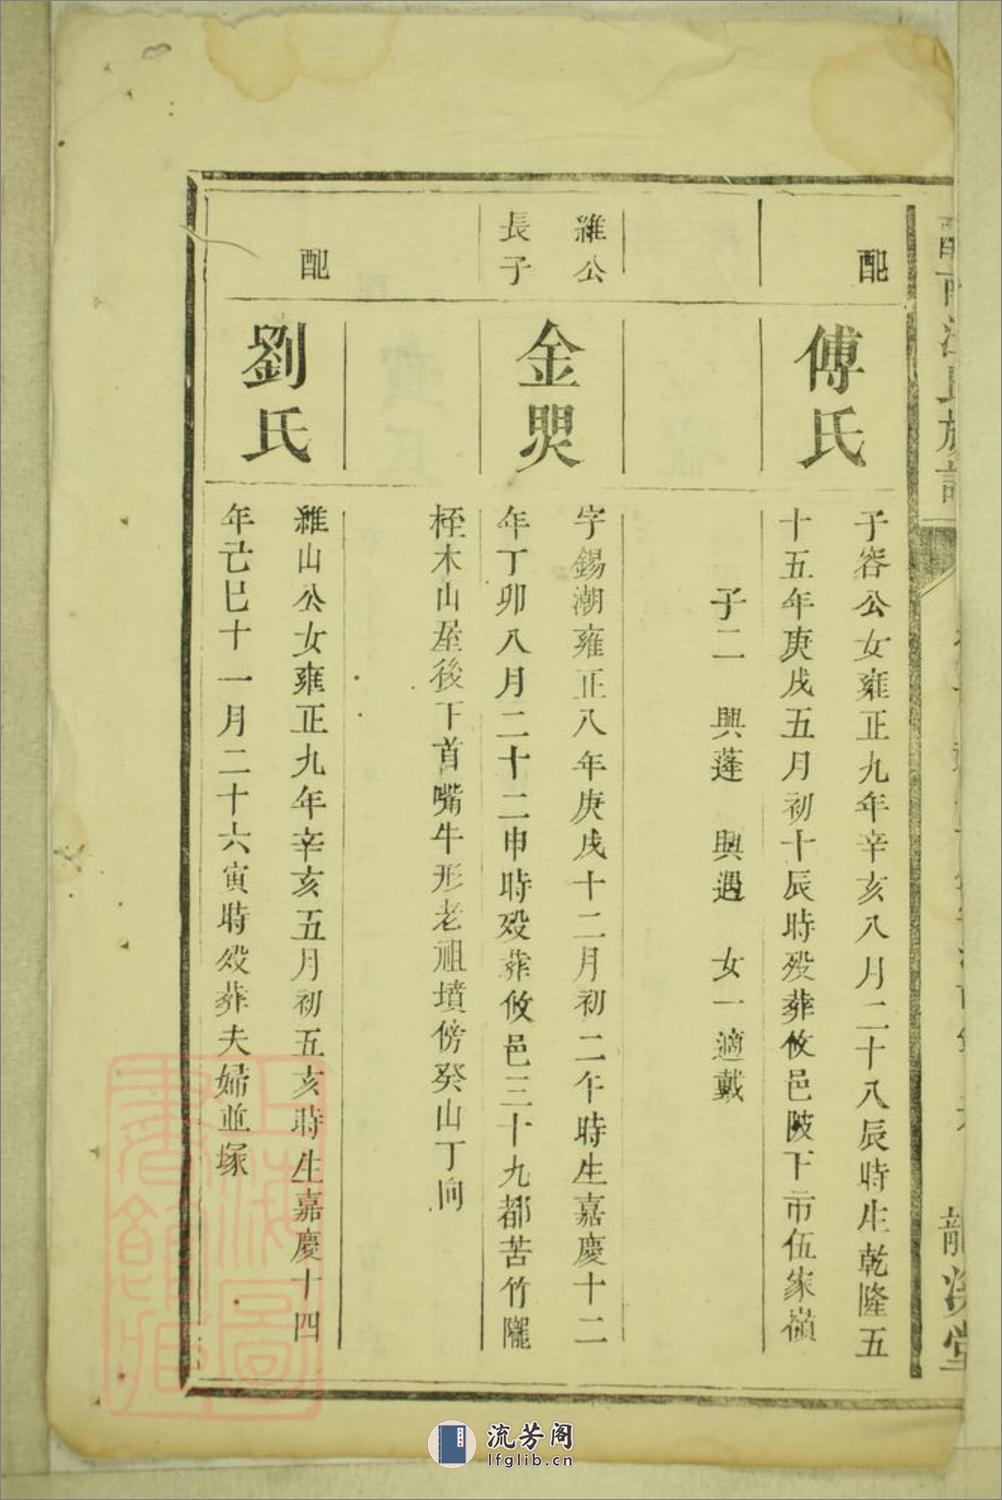 配
傅氏
子容公女雍正九年辛亥八月二十八辰時生乾隆五
十五年庚戌五月初十辰時歿葬攸邑陂下市伍家嶺
子二 興蓬 興遇 女一適戴
維公
長子
金煛
字錫潮雍正八年庚戌十二月初二午時生嘉慶十二
年丁卯八月二十二申時歿葬攸邑三十九都苦竹隴
桎木山屋後下首嘴牛形老祖墳傍癸山丁向
配
劉氏
維山公女雍正九年辛亥五月初五亥時生嘉慶十四
年己巳十一月二十六寅時歿葬夫婦並塚
龍溪堂
上海圖書館藏
流芳阁
lfglib.cn